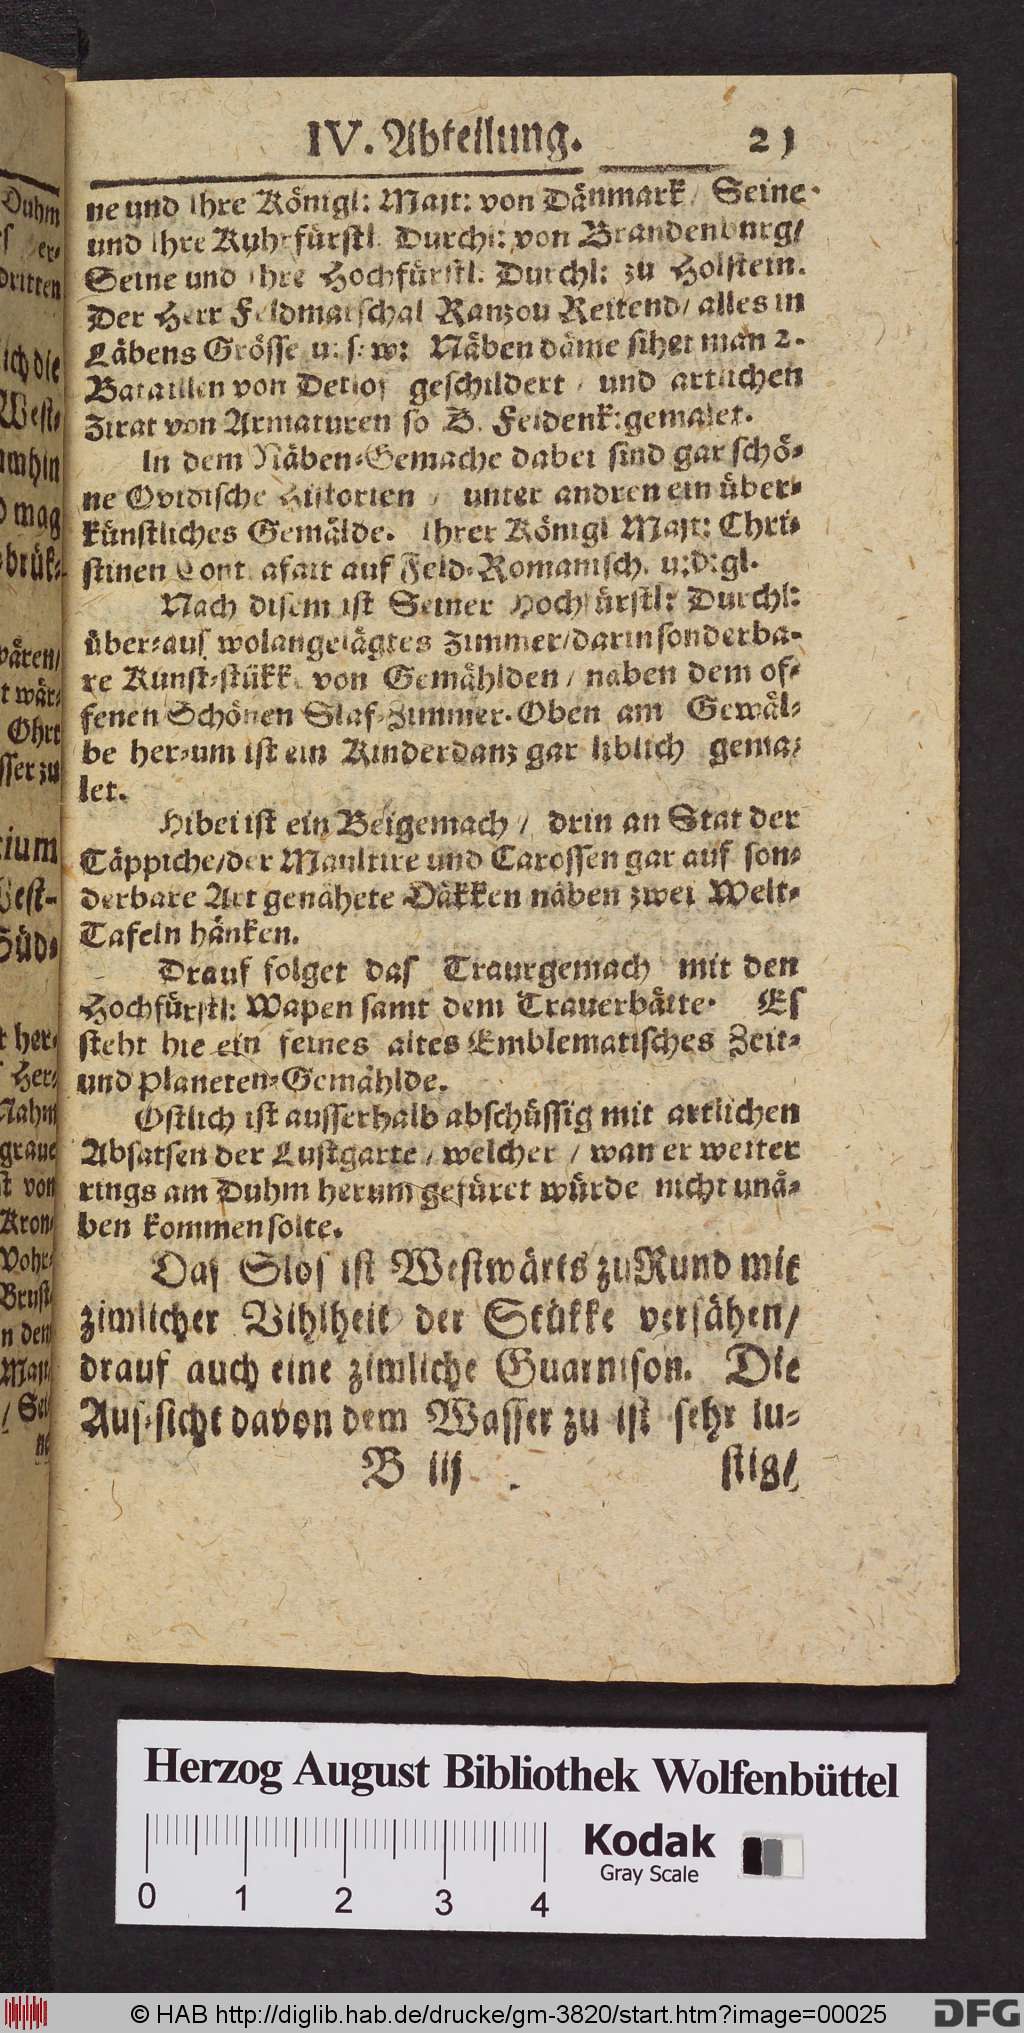 IV. Abteilung. 21
ne und Ihre Königl: Majt: von Dänmark / Seine
und Ihre Kuhrfürstl. Durchl: von Brandenburg/
Seine und Ihre Hochfürstl. Durchl: zu Holstein.
Der Herr Feldmarschal Ranzou Reitend/ alles in
Läbens Grösse u: s: w: Näben däme sihet man 2.
Bataillen von Detlof geschildert / und artlichen
Zirat von Armaturen so D. Feldenk: gemalet.
In dem Näben-Gemache dabei sind gar schö-
ne Ovidische Historien / unter andren ein über-
künstliches Gemälde. Ihrer Königl Majt: Chri-
stinen Contrafait auf Feld-Romanisch. u:d:gl.
Nach disem ist Seiner Hochfürstl: Durchl:
über-aus wolangelägtes Zimmer/ darin sonderba-
re Kunst-stükke von Gemählden / naben dem of-
fenen Schönen Slaf-Zimmer. Oben am Gewäl-
be her-um ist ein Kinderdanz gar liblich gema-
let.
Hibei ist ein Beigemach / drin an Stat der
Täppiche/ der Maultire und Carossen gar auf son-
derbare Art genähete Däkken näben zwei Welt-
Tafeln hänken.
Drauf folget das Traurgemach mit den
Hochfürstl: Wapen samt dem Trauerbätte. Es
steht hie ein feines altes Emblematisches Zeit-
und Planeten-Gemählde.
Ostlich ist ausserhalb abschüssig mit artlichen
Absatsen der Lustgarte / welcher / wan er weiter
rings am Duhm herum gefüret würde nicht unä-
ben kommen solte.
Das Slos ist Westwärts zu Rund mit
zimlicher Vihlheit der Stükke versähen/
drauf auch eine zimliche Guarnison. Die
Aus-sicht davon dem Wasser zu ist sehr lu-
B iij stig/
Duhm
er-
dritten
ich die
West-
umhin
mag
brük-
wären/
t wär-
Ohrt
sser zu
West-
Süd-
her-
Her-
Nahm
graue
von
Kron-
Brust
n den
Majt
/ Sei
ne
Herzog August Bibliothek Wolfenbüttel
0 1 2 3 4
Kodak
Gray Scale
© HAB http://diglib.hab.de/drucke/gm-3820/start.htm?image=00025
DFG